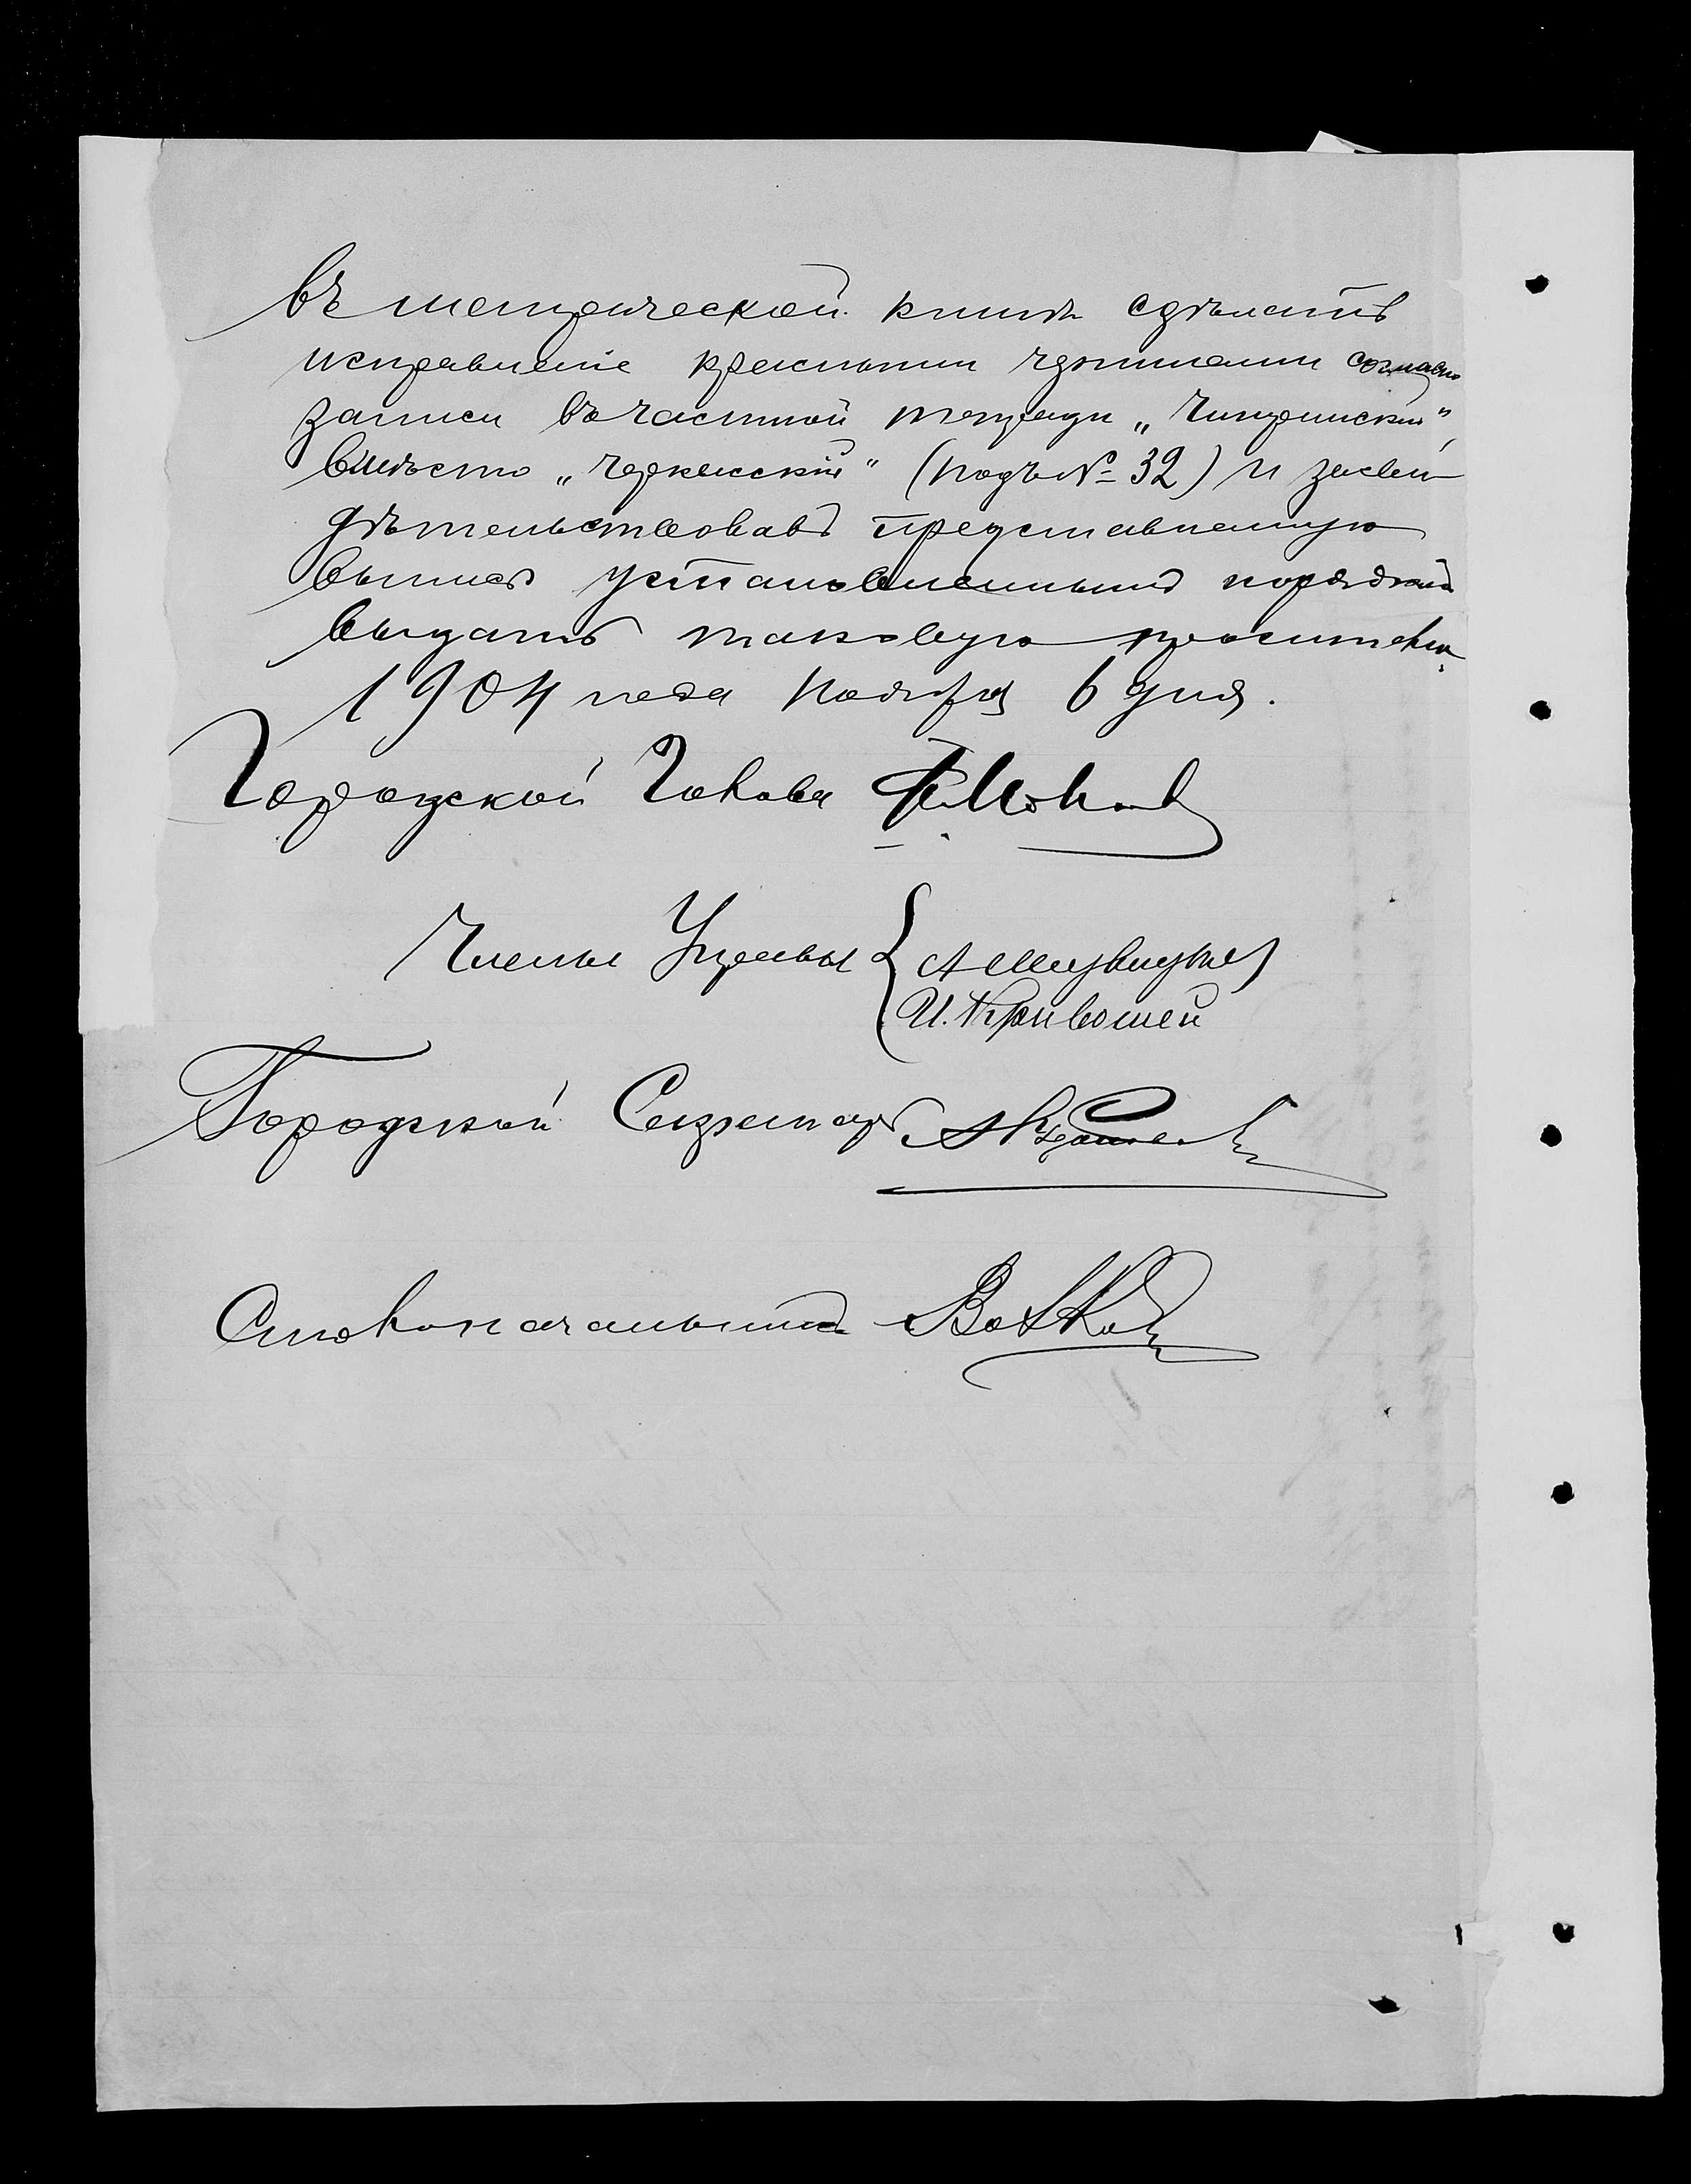 въ метрической книгѣ сдѣлать
исправленіе красными чернилами согласно
записи въ частной тетради „Чигринскій"
вмѣсто „Черкасскій" (подъ № 32) и засви-
дѣтельствовавъ представленную
выпись установленнымъ порядкомъ
выдать таковую просителю.
1904 года Ноября 6 дня.
Городской Голова
Члены Управы
И. Кривошей
Городской Секретарь
Столоначальникъ